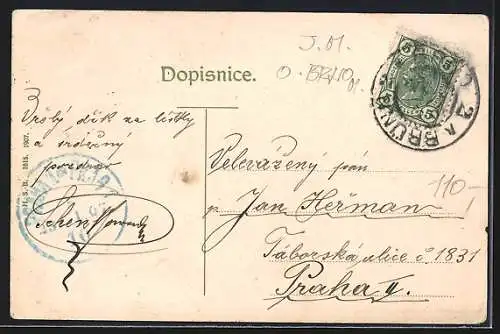 J. M.
O - BRNO
Dopisnice.
5 5
5 5
2 A BRÜNN
Vřelý dík za lístky
a srdečný
pozdrav
H. S. B. 1615. 1907.
Velevážený pán
p. Jan Heřman
Táborská ulice č 1831
Praha II.
110,-